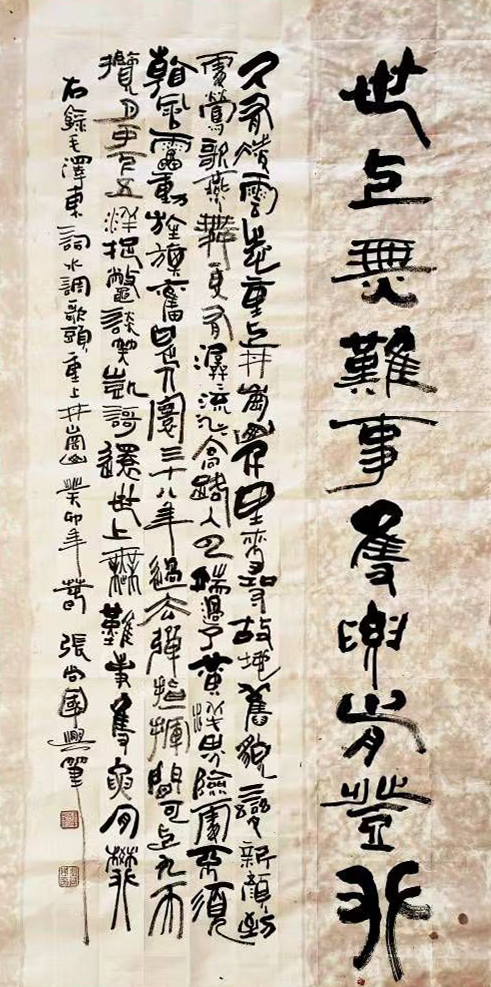 世上無難事隻要肯登攀
久有凌雲志重上井崗山千里來尋故地舊貌變新顏到
處鶯歌燕舞更有潺潺流水高路入雲端過了黃洋界險處不須
看風雷動旌旗奮是人寰三十八年過去彈指揮間可上九天
攬月可下五洋捉鱉談笑凱歌還世上無難事隻要肯登攀
右錄毛澤東詞水調歌頭重上井崗山癸卯年春張尚國興筆